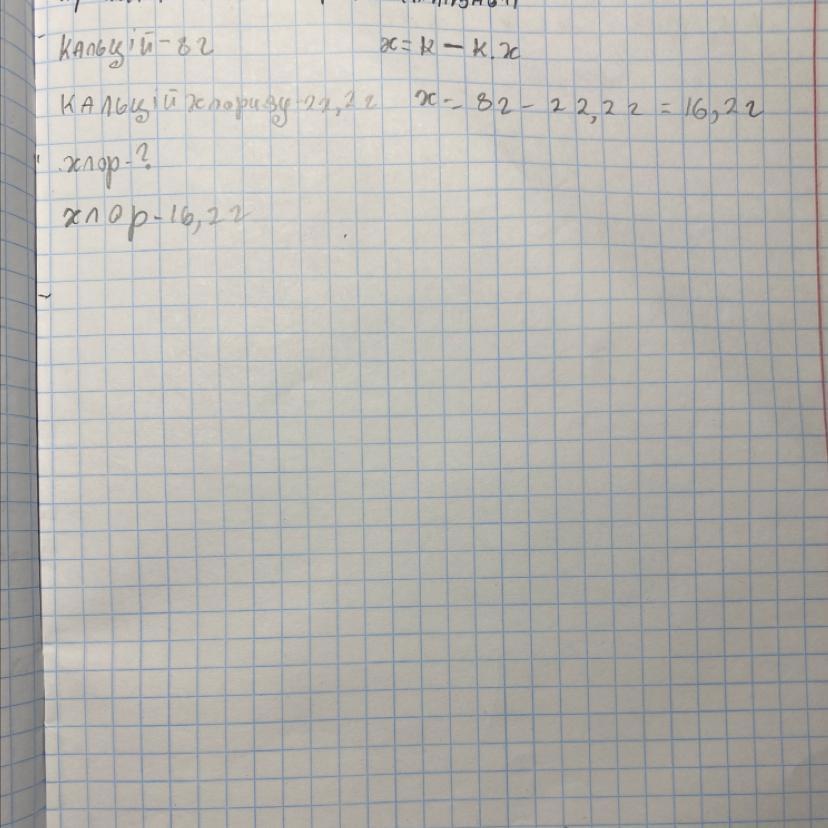 кальцій - 8г
х = к - к.х
кальцій хлориду - 22,2г
х = 8г - 22,2г = 16,2г
хлор - ?
хлор - 16,2г